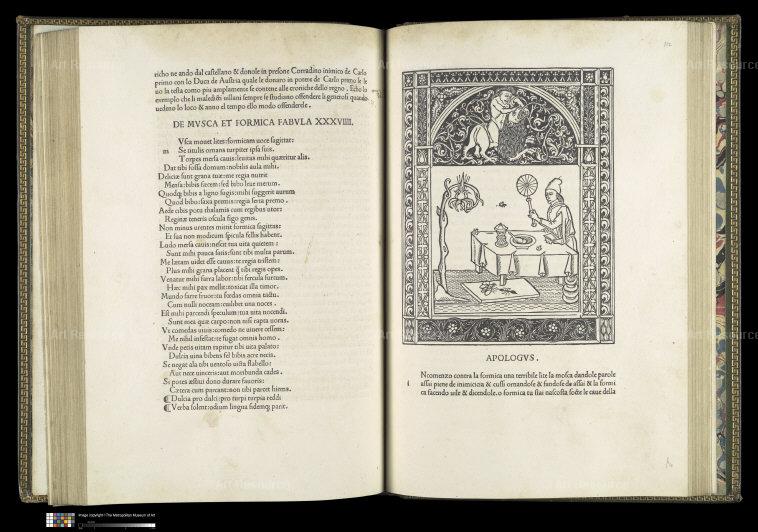 richo ne ando dal castellano & donole in presone Corradino inimico de Carlo
primo con lo Duca de Austria quale le donaro in potere de Carlo primo le le
uo la testa como piu amplamente se contene alle croniche dello regno. Echo lo
exemplo che li maledicti uillani sempre se studiano offendere li generosi quando
uedeno lo loco & anno el tempo ello modo offenderele.
DE MVSCA ET FORMICA FABVLA XXXVIIII.
Vsca mouet lites: formicam uoce sagittat:
m Se titulis ornans turpiter ipsa suis.
Torpes mersa cauis: leuitas mihi quæritur alis.
Dat tibi fossa domum: nobilis aula mihi.
Deliciæ sunt grana tuæ: me regia nutrit
Mensa: bibis fæcem: sed bibo leta merum.
Quodq; bibis a ligno sugis: mihi suggerit aurum
Quod bibo: saxa premis: regia serta premo.
Aede cubis pota thalamis cum regibus utor:
Reginæ teneris oscula figo genis.
Non minus urentes mittit formica sagittas:
Et sua non modicum spicula fellis habent.
Ludo mersa cauis: nescit tua uita quietem:
Sunt mihi pauca satis: sunt tibi multa parum.
Me lætam uidet esse cauus: te regia tristem:
Plus mihi grana placent q̃ tibi regis opes.
Venatur mihi farra labor: tibi fercula furtum.
Hæc mihi pax mellit: toxicat illa timor.
Mundo farre fruor: tu fœdas omnia tactu.
Cum nulli noceam: cuilibet una noces.
Est mihi parcendi speculum: tua uita nocendi.
Sunt mea quæ carpo: non nisi rapta uoras.
Vt comedas uiuis: comedo ne uiuere cessem:
Me nihil infestat: te fugat omnis homo.
Vnde petis uitam rapitur tibi uita palato:
Dulcia uina bibens fel bibis acre necis.
Se negat ala tibi uentoso uicta flabello:
Aut nece uinceris: aut moribunda cades.
Si potes æstiui dono durare fauoris:
Cætera cum parcant: non tibi parcet hiems.
Dulcia pro dulci: pro turpi turpia reddi
Verba solent: odium lingua fidemq; parit.
APOLOGVS.
Ncomenzo contra la formica una terribile lite la mosca dandole parole
i assai piene de inimicicia & cussi ornandose & fandose de assai & la formi
ca facendo uile & dicendole. o formica tu stai nascosta socte le caue della
Image copyright The Metropolitan Museum of Art